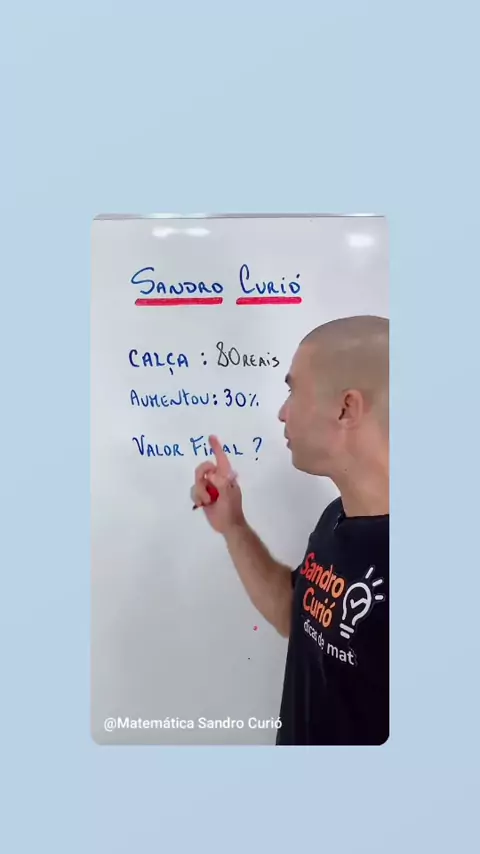 SANDRO CURIÓ
CALÇA : 80 REAIS
AUMENTOU : 30%
VALOR FINAL ?
Sandro
Curió
dicas de mat
@Matemática Sandro Curió